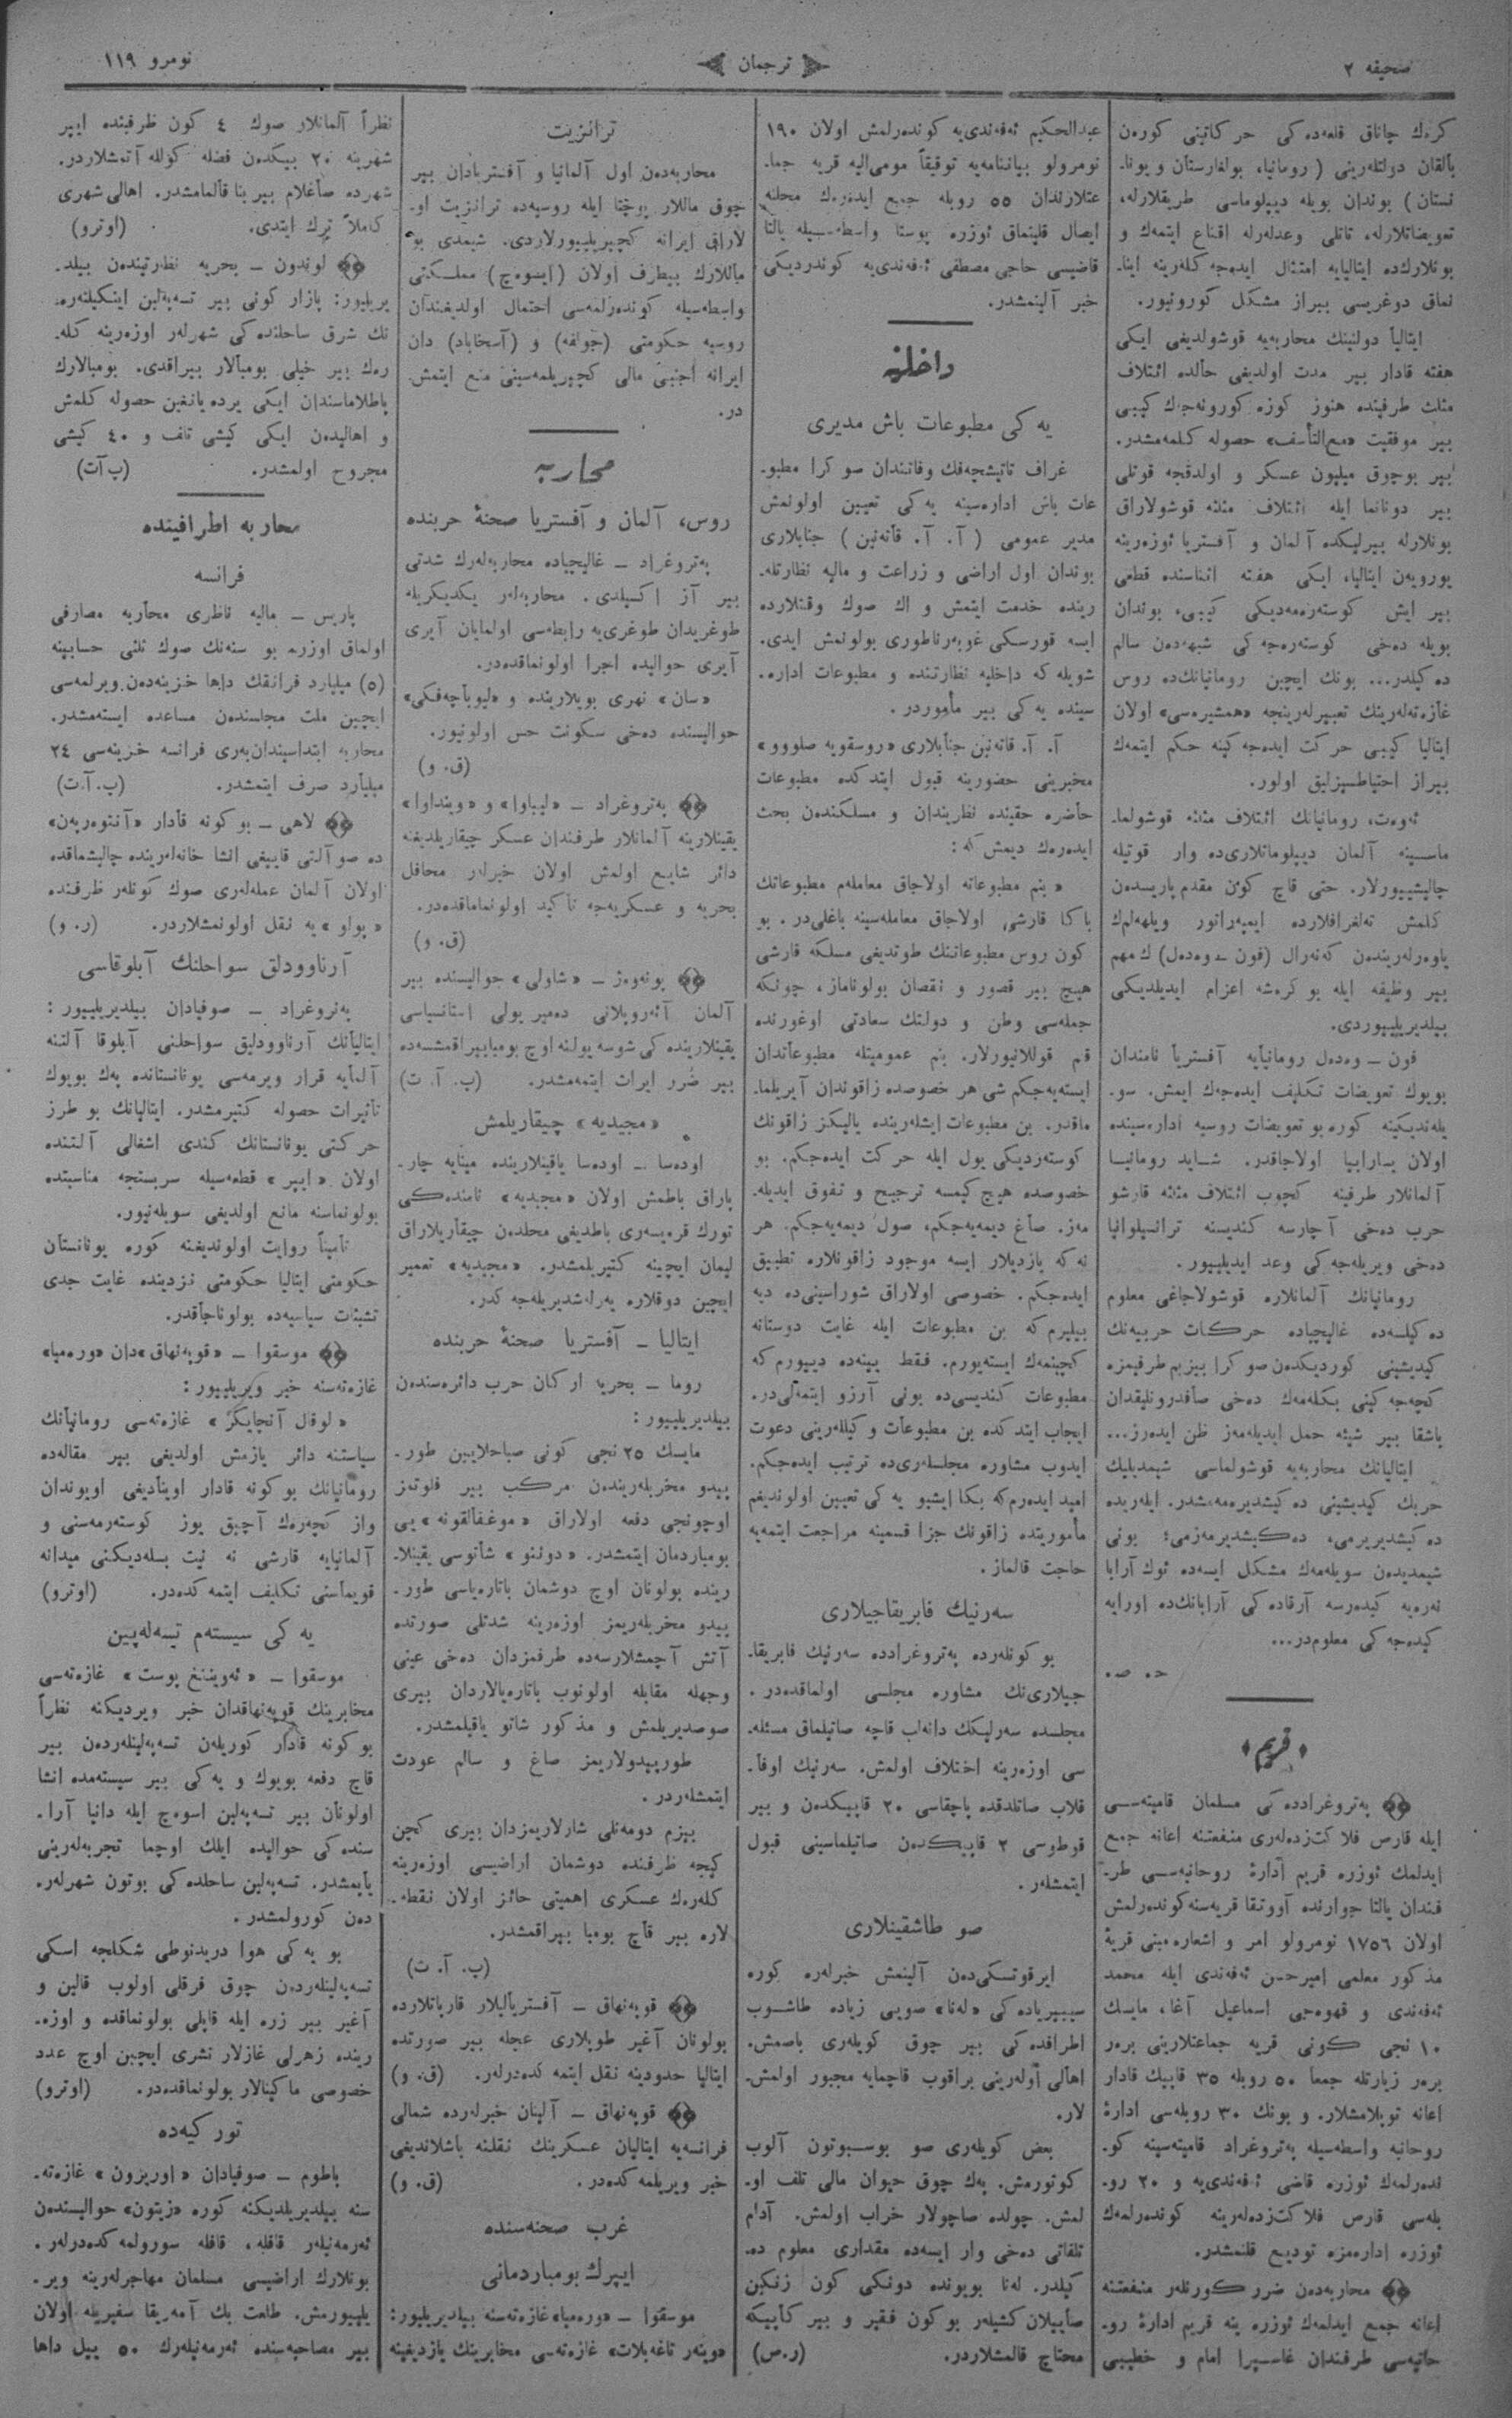 صحیفه ۲
﴿ ترجمان ﴾
نومرو ۱۱۹
كرەك چاناق قلعەدەكی حركاتینی كورەن
بالقان دولتلەرینی ( رومانیا، بولغارستان و یونا-
نستان ) بوندان بویله دیپلوماسی طریقلارله،
تعویضاتلارله، تاتلی وعدلەرله اقناع ایتمەك و
بونلارك‌ده ایتالیایه امتثال ایدەجەكلەرینه اینا-
نماق دوغریسی بیراز مشكل كورونیور.
ایتالیا دولتینك محاربەیه قوشولدیغی ایكی
هفته قادار بیر مدت اولدیغی حالده ائتلاف
مثلث طرفینده هنوز كوزه كورونەجك كیبی
بیر موفقیت «مع‌التأسف» حصوله كلمەمشدر.
بیر بوچوق میلیون عسكر و اولدقجه قوتلی
بیر دونانما ایله ائتلاف مثلثه قوشولاراق
بونلارله بیرلیكده آلمان و آفستریا ئوزەرینه
یورویەن ایتالیا، ایكی هفته اثناسنده قطعی
بیر ایش كوستەرەمەدیكی كیبی، بوندان
بویله دەخی كوستەرەجەكی شبهەدن سالم
دەكیلدر... بونك ایچین رومانیانك‌ده روس
غازەتەلەرینك تعبیرلەرینجه «همشیرەسی» اولان
ایتالیا كیبی حركت ایدەجەكینه حكم ایتمەك
بیراز احتیاطسیزلیق اولور.
ئەوەت، رومانیانك ائتلاف مثلثه قوشولما-
ماسینه آلمان دیپلوماتلاری‌ده وار قوتیله
چالیشیورلار. حتی قاچ كون مقدم پاریسدن
كلمش تەلغرافلارده ایمپەراتور ویلهەلم‌ك
یاوەرلەریندەن كەنەرال (فون ـ وەدەل) ك مهم
بیر وظیفه ایله بوكرەشه اعزام ایدیلدیكی
بیلدیریلیوردی.
فون ـ وەدەل رومانیایه آفستریا نامندان
بویوك تعویضات تكلیف ایدەجەك ایمش. سو-
یلەندیكینه كوره بو تعویضات روسیه ادارەسینده
اولان بسارابیا اولاجاقدر. شاید رومانیا
آلمانلار طرفینه كچوب ائتلاف مثلثه قارشو
حرب دەخی آچارسه كندیسنه ترانسیلوانیا
دەخی ویریلەجەكی وعد ایدیلیور.
رومانیانك آلمانلاره قوشولاجاغی معلوم
دەكیلسەده غالیچیاده حركات حربیەنك
كیدیشینی كوردیكدەن صوكرا بیزیم طرفیمزه
كچەجەكینی بكلەمەك دەخی صافدرونلیقدان
باشقا بیر شیئه حمل ایدیلەمەز ظن ایدەرز...
ایتالیانك محاربەیه قوشولماسی شیمدیلیك
حربك كیدیشینی دەكیشدیرەمەمشدر. ایلەریده
دەكیشدیریرمی، دەكیشدیرمەزمی؛ بونی
شیمدیدەن سویلەمەك مشكل ایسەده ئوك آرابا
نەرەیه كیدەرسه آرقادەكی آرابانك‌ده اورایه
كیدەجەكی معلوم‌در...
ح. ص.
﴿قریم﴾
پەتروغرادده‌كی مسلمان قامیتەسی
ایله قارص فلاكت‌زدەلەری منفعتنه اعانه جمع
ایدلمك ئوزره قریم ادارۀ روحانیەسی طر-
فندان یالتا جوارنده آووتقا قریەسنه كوندەرلمش
اولان ۱۷۵٦ نومرولو امر و اشعاره مبنی قریۀ
مذكور معلمی امیرحسن ئەفەندی ایله محمد
ئەفەندی و قهوەجی اسماعیل آغا، مایسك
۱۰ نجی كونی قریه جماعتلارینی برەر
برەر زیارتله جمعا ۵۰ روبله ۳۵ قاپیك قادار
اعانه توپلامشلار. و بونك ۳۰ روبلەسی ادارۀ
روحانیه واسطەسیله پەتروغراد قامیتەسینه كو-
ندەرلمەك ئوزره قاضی ئەفەندی‌یه و ۲۰ رو-
بلەسی قارص فلاكت‌زدەلەرینه كوندەرلمەك
ئوزره ادارەمزه تودیع قلنمشدر.
محاربەدەن ضرر كورنلەر منفعتنه
اعانه جمع ایدلمەك ئوزره ینه قریم ادارۀ رو-
حانیەسی طرفندان غاسپرا امام و خطیبی
عبدالحكیم ئەفەندی‌یه كوندەرلمش اولان ۱۹۰
نومرولو بیاننامەیه توفیقاً مومی‌الیه قریه جما-
عتلارندان ۵۵ روبله جمع ایدەرەك محلنه
ایصال قلینماق ئوزره پوستا واسطەسیله یالتا
قاضیسی حاجی مصطفی ئەفەندی‌یه كوندردیكی
خبر آلینمشدر.
داخلیه
یەكی مطبوعات باش مدیری
غراف تاتیشچەفك وفاتندان صوكرا مطبو-
عات باش ادارەسینه یەكی تعیین اولونمش
مدیر عمومی ( آ. آ. قاتەنین ) جنابلاری
بوندان اول اراضی و زراعت و مالیه نظارتلە-
رینده خدمت ایتمش و اك صوك وقتلارده
ایسه قورسكی غوبەرناطوری بولونمش ایدی.
شویله كه داخلیه نظارتنده و مطبوعات ادارە-
سینده یەكی بیر مأموردر.
آ. آ. قاتەنین جنابلاری «روسقویه صلووو»
مخبرینی حضورینه قبول ایتدكده مطبوعات
حاضره حقینده نظریندان و مسلكندەن بحث
ایدەرەك دیمش كه:
« بنم مطبوعاته اولاجاق معاملەم مطبوعاتك
باكا قارشی اولاجاق معاملەسینه باغلی‌در. بو
كون روس مطبوعاتنك طوتدیغی مسلكه قارشی
هیچ بیر قصور و نقصان بولوناماز، چونكه
جملەسی وطن و دولتك سعادتی اوغورنده
قلم قوللانیورلار. بنم عمومیتله مطبوعاتدان
ایستەیەجكم شی هر خصوصده زاقوندان آیریلما-
ماقدر. بن مطبوعات ایشلەرینده یالیكز زاقونك
كوستەردیكی یول ایله حركت ایدەجكم. بو
خصوصده هیچ كیمسه ترجیح و تفوق ایدیلە-
مەز. صاغ دیمەیەجكم، صول دیمەیەجكم. هر
نه كه یازدیلار ایسه موجود زاقونلاره تطبیق
ایدەجكم. خصوصی اولاراق شوراسینی‌ده دیه
بیلیرم كه بن مطبوعات ایله غایت دوستانه
كچینمەك ایستەیورم. فقط یینەده دییورم كه
مطبوعات كندیسی‌ده بونی آرزو ایتمەلی‌در.
ایجاب ایتدكده بن مطبوعات وكیللەرینی دعوت
ایدوب مشاوره مجلسلەری‌ده ترتیب ایدەجكم.
امید ایدەرم كه بكا ایشبو یەكی تعیین اولوندیغم
مأموریتده زاقونك جزا قسمینه مراجعت ایتمەیه
حاجت قالماز.
سەرنیك فابریقاجیلاری
بو كونلەرده پەتروغرادده سەرنیك فابریقا-
جیلاری‌نك مشاوره مجلسی اولماقدەدر.
مجلسده سەرنیكك دانەلب قاچه صاتیلماق مسئلە-
سی اوزەرینه اختلاف اولمش. سەرنیك اوفا-
قلاب صاتلدقده پاچقاسی ۲۰ قاپیكدەن و بیر
قوطوسی ۲ قاپیكدەن صاتیلماسینی قبول
ایتمشلەر.
صو طاشقینلاری
ایرقوتسكی‌دەن آلینمش خبرلەره كوره
سیبیریادەكی «لەنا» صویی زیاده طاشوب
اطرافدەكی بیر چوق كویلەری باصمش.
اهالی اولەرینی براقوب قاچمایه مجبور اولمش-
لار.
بعض كویلەری صو بوسبوتون آلوب
كوتورمش. پەك چوق حیوان مالی تلف او-
لمش. چولده صاچولار خراب اولمش. آدام
تلفاتی دەخی وار ایسەده مقداری معلوم دە-
كیلدر. لەنا بویونده دونكی كون زنكین
صاییلان كشیلەر بوكون فقیر و بیر كاپیكه
محتاج قالمشلاردر. (ر.ص)
ترانزیت
محاربەدەن اول آلمانیا و آفستریادان بیر
چوق ماللار پوچتا ایله روسیەده ترانزیت او-
لاراق ایرانه كچیریلیورلاردی. شیمدی بو
ماللارك بیطرف اولان (ایسوەچ) مملكتی
واسطەسیله كوندەرلمەسی احتمال اولدیغندان
روسیه حكومتی (جولفه) و (آسخاباد) دان
ایرانه اجنبی مالی كچیریلمەسینی منع ایتمش-
در.
محاربه
روس، آلمان و آفستریا صحنۀ حربنده
پەتروغراد ـ غالیچیاده محاربەلەرك شدتی
بیر آز اكسیلدی. محاربەلەر یكدیكریله
طوغریدان طوغری‌یه رابطەسی اولمایان آیری
آیری حوالیده اجرا اولونماقدەدر.
«سان» نهری بویلارینده و «لیوباچەفكی»
حوالیسنده دەخی سكونت حس اولونیور.
(ق. و)
پەتروغراد ـ «لیباوا» و «وینداوا»
یقینلارینه آلمانلار طرفندان عسكر چیقاریلدیغنه
دائر شایع اولمش اولان خبرلەر محافل
بحریه و عسكریەجه تأكید اولونماماقدەدر.
(ق. و)
پونەوەژ ـ «شاولی» حوالیسنده بیر
آلمان آئەروپلانی دەمیر یولی استانسیاسی
یقینلارینده‌كی شوسه یولنه اوچ بومبا بیراقمشسەده
بیر ضرر ایراث ایتمەمشدر. (پ. آ. ت)
«مجیدیه» چیقاریلمش
اودەسا ـ اودەسا یاقینلارینده مینایه چار-
پاراق باطمش اولان «مجیدیه» نامنده‌كی
تورك قرەیسەری باطدیغی محلدەن چیقاریلاراق
لیمان ایچینه كتیریلمشدر. «مجیدیه» تعمیر
ایچین دوقلاره یەرلەشدیریلەجەكدر.
ایتالیا ـ آفستریا صحنۀ حربنده
روما ـ بحریه اركان حرب دائرەسندەن
بیلدیریلیور:
مایسك ۲۵ نجی كونی صباحلایین طور-
پیدو مخربلەریندەن مركب بیر فلوتمز
اوچونجی دفعه اولاراق «موغفالقونه» یی
بومباردمان ایتمشدر. «دوئنو» شاتوسی یقینلا-
رینده بولونان اوچ دوشمان باتارەیاسی طور-
پیدو مخربلەریمز اوزەرینه شدتلی صورتده
آتش آچمشلارسەده طرفمزدان دەخی عینی
وجهله مقابله اولونوب باتارەیالاردان بیری
صوصدیریلمش و مذكور شاتو یاقیلمشدر.
طورپیدولاریمز صاغ و سالم عودت
ایتمشلەردر.
بیزم دومەنلی شارلاریمزدان بیری كچن
كیجه ظرفنده دوشمان اراضیسی اوزەرینه
كلەرەك عسكری اهمیتی حائز اولان نقطە-
لاره بیر قاچ بومبا بیراقمشدر.
(پ. آ. ت)
قوپەنهاق ـ آفستریالیلار قارپاتلارده
بولونان آغیر طوپلاری عجله بیر صورتده
ایتالیا حدودینه نقل ایتمەكدەدرلەر. (ق. و)
قوپەنهاق ـ آلمان خبرلەرده شمالی
فرانسەیه ایتالیان عسكرینك نقلنه باشلاندیغی
خبر ویریلمەكدەدر. (ق. و)
غرب صحنەسنده
ایپرك بومباردمانی
موسقوا ـ «ورەمیا» غازەتەسنه بیلدیریلیور:
«دویتەر تاغەبلات» غازەتەسی مخابرینك یازدیغینه
نظراً آلمانلار صوك ٤ كون ظرفینده ایپر
شهرینه ۲۰ بیكدەن فضله كولله آتمشلاردر.
شهرده صاغلام بیر بنا قالمامشدر. اهالی شهری
كاملاً ترك ایتدی. (اوترو)
لوندون ـ بحریه نظارتیندەن بیلد-
یریلیور: پازار كونی بیر تسەپەلین اینكیلتەرە-
نك شرق ساحلنده‌كی شهرلەر اوزەرینه كلە-
رەك بیر خیلی بومبالار بیراقدی. بومبالارك
پاطلاماسندان ایكی یرده یانغین حصوله كلمش
و اهالیدەن ایكی كیشی تلف و ٤۰ كیشی
مجروح اولمشدر. (پ آت)
محاربه اطرافینده
فرانسه
پاریس ـ مالیه ناظری محاربه مصارفی
اولماق اوزره بو سنەنك صوك ثلثی حسابینه
(۵) میلیارد فرانقك داها خزینەدەن ویرلمەسی
ایچین ملت مجلسندەن مساعده ایستەمشدر.
محاربه ابتداسیندان‌بەری فرانسه خزینەسی ۲٤
میلیارد صرف ایتمشدر. (پ. آ. ت)
لاهی ـ بوكونه قادار «آنتوەرپەن»
ده صو آلتی قاییغی انشا خانەلەرینده چالیشماقده
اولان آلمان عملەلەری صوك كونلەر ظرفنده
«پولو» یه نقل اولونمشلاردر. (ر. و)
آرناوودلق سواحلنك آبلوقاسی
پەتروغراد ـ صوفیادان بیلدیریلیور:
ایتالیانك آرناوودلیق سواحلنی آبلوقا آلتنه
آلمایه قرار ویرمەسی یونانستانده پەك بویوك
تأثیرات حصوله كتیرمشدر. ایتالیانك بو طرز
حركتی یونانستانك كندی اشغالی آلتنده
اولان «ایپر» قطعەسیله سربستجه مناسبتده
بولونماسنه مانع اولدیغی سویلەنیور.
ثانیاً روایت اولوندیغنه كوره یونانستان
حكومتی ایتالیا حكومتی نزدینده غایت جدی
تشبثات سیاسیەده بولوناجاقدر.
موسقوا ـ «قوپەنهاق»دان «ورەمیا»
غازەتەسنه خبر ویریلیور:
« لوقال آنچایكر » غازەتەسی رومانیانك
سیاستنه دائر یازمش اولدیغی بیر مقالەده
رومانیانك بوكونه قادار اوینادیغی اویوندان
واز كچەرەك آچیق یوز كوستەرمەسنی و
آلمانیایه قارشی نه نیت بسلەدیكنی میدانه
قویماسنی تكلیف ایتمەكدەدر. (اوترو)
یەكی سیستەم تیسەلەپین
موسقوا ـ «ئەویننغ پوست» غازەتەسی
مخابرینك قوپەنهاقدان خبر ویردیكنه نظراً
بوكونه قادار كوریلەن تسەپەلینلەردەن بیر
قاچ دفعه بویوك و یەكی بیر سیستەمده انشا
اولونان بیر تسەپەلین اسوەچ ایله دانیا آرا-
سنده‌كی حوالیده ایلك اوچما تجربەلەرینی
یاپمشدر. تسەپەلین ساحلده‌كی بوتون شهرلەر-
دەن كورولمشدر.
بو یەكی هوا دریدنوطی شكلجه اسكی
تسەپەلینلەردەن چوق فرقلی اولوب قالین و
آغیر بیر زره ایله قاپلی بولونماقده و اوزە-
رینده زهرلی غازلار نشری ایچین اوچ عدد
خصوصی ماكینالار بولونماقدەدر. (اوترو)
توركیەده
باطوم ـ صوفیادان «اوریزون» غازەتە-
سنه بیلدیریلدیكنه كوره «زیتون» حوالیسندەن
ئەرمەنیلەر قافله، قافله سورولمەكدەدرلەر.
بونلارك اراضیسی مسلمان مهاجرلەرینه ویر-
یلیورمش. طلعت بك آمەریقا سفیریله اولان
بیر مصاحبەسنده ئەرمەنیلەرك ۵۰ ییل داها